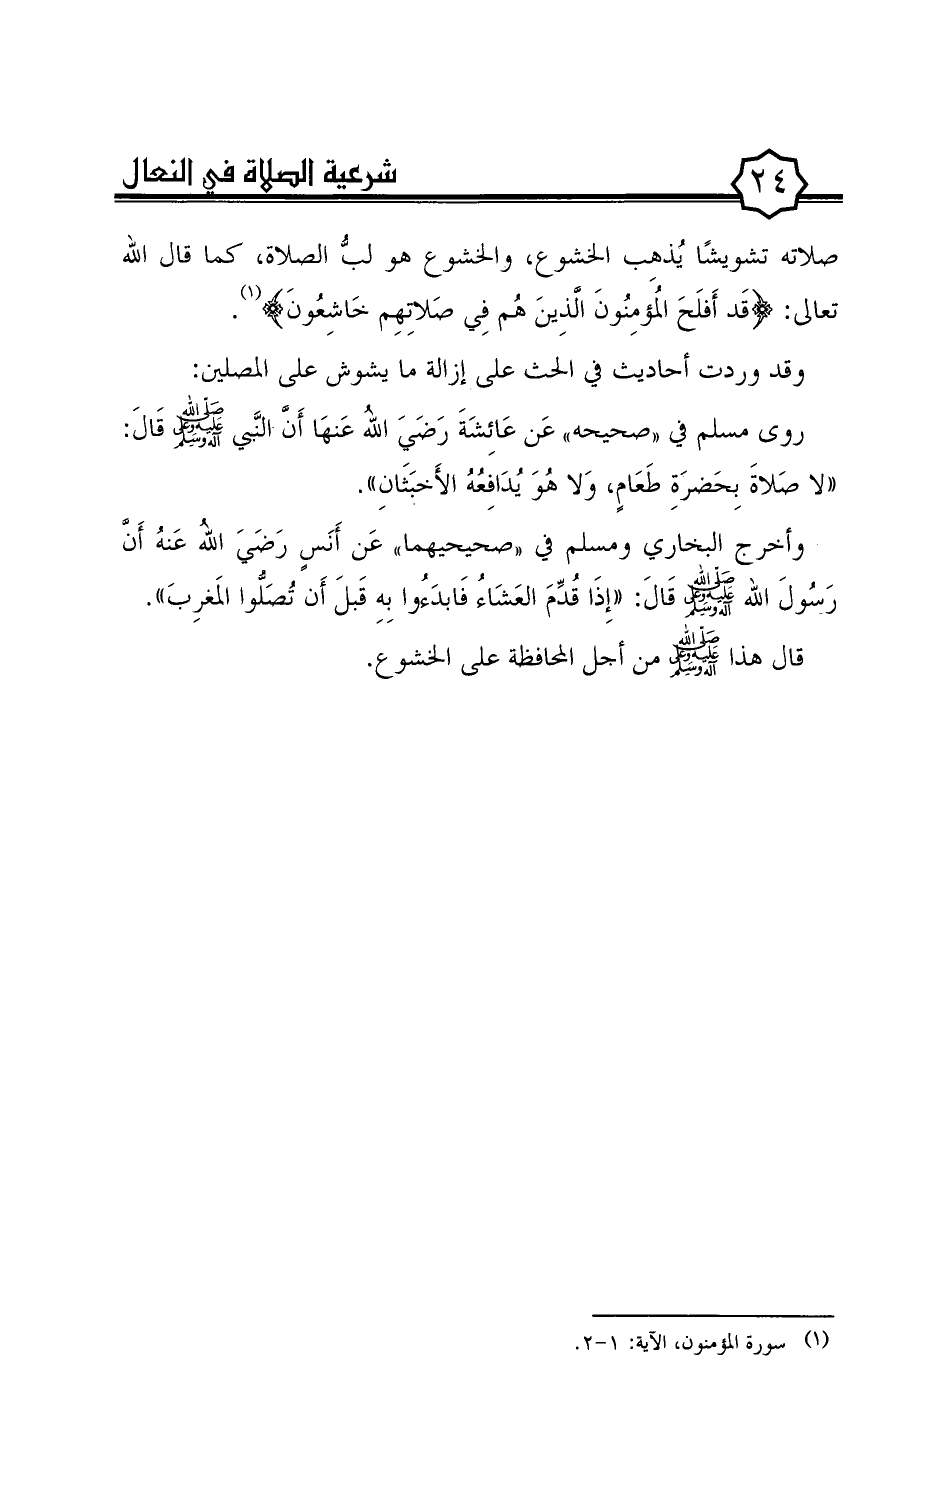 ٢٤
شرعية الصلاة في النعال
صلاته تشويشًا يُذهِب الخشوع، والخشوع هو لبُّ الصلاة، كما قال الله
تعالى: ﴿قَد أَفلَحَ الْمُؤمِنُونَ الَّذِينَ هُم فِي صَلاتِهِم خَاشِعُونَ﴾(١).
وقد وردت أحاديث في الحث على إزالة ما يشوش على المصلين:
روى مسلم في «صحيحه» عَن عَائِشَةَ رَضَيَ اللهُ عَنهَا أَنَّ النَّبي ﷺ قَالَ:
«لا صَلاةَ بِحَضرَةِ طَعَامٍ، وَلا هُوَ يُدَافِعُهُ الأَخبَثَانِ».
وأخرج البخاري ومسلم في «صحيحيهما» عَن أَنَسٍ رَضَيَ اللهُ عَنهُ أَنَّ
رَسُولَ الله ﷺ قَالَ: «إِذَا قُدِّمَ العَشَاءُ فَابدَءُوا بِهِ قَبلَ أَن تُصَلُّوا المَغرِبَ».
قال هذا ﷺ من أجل المحافظة على الخشوع.
(١) سورة المؤمنون، الآية: ١-٢.